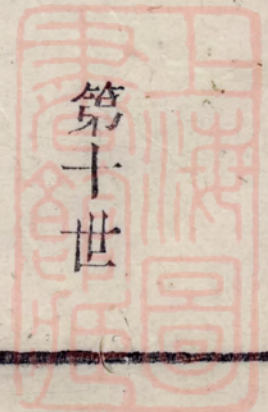 第十世
上海圖
書館藏